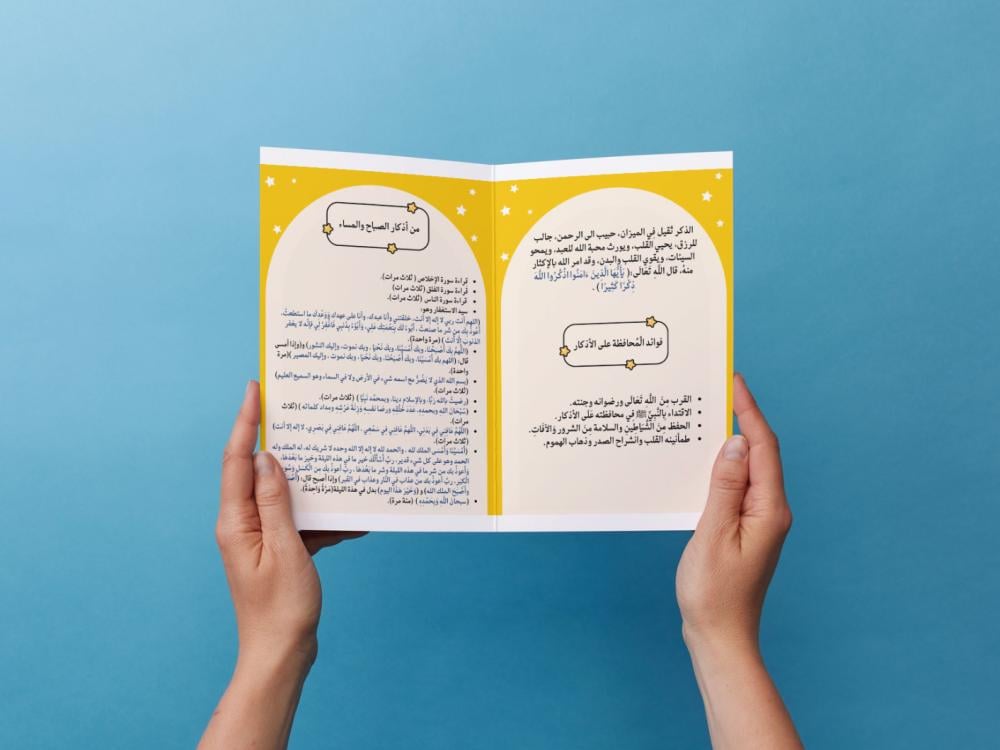 الذكر ثقيل في الميزان، حبيب الى الرحمن، جالب
للرزق، يحيي القلب، ويورث محبة الله للعبد، ويمحو
السيئات، ويقوي القلب والبدن، وقد امر الله بالإكثار
منهُ، قال اللَّهِ تَعَالَى:( يَأَيُّهَا الَّذِينَ ءَامَنُوا اذْكُرُوا اللَّهَ
ذِكْرًا كَثِيرًا ) .
فوائد الْمُحافظة على الأذكار
القرب منَ اللَّه تَعَالَى ورضوانه وجنته.
الاقتداء بِالنَّبِيِّ ﷺ في محافظته عَلَى الأذكار.
الحفظ مِنَ الشَّيَاطِين والسلامة مِنَ الشرور وَالآفَاتِ.
طمأنينه القلب وانشراح الصدر وذهاب الهموم.
من أذكار الصباح والمساء
قراءة سورة الإخلاص ( ثلاث مرات).
قراءة سورة الفلق (ثلاث مرات)
قراءة سورة الناس (ثلاث مرات).
سيد الاستغفار وهو:
(اللهم أنت ربي لا إله إلا أنت، خلقتني وأنا عبدك، وأنا على عهدك وَوَعْدِكَ ما استطعتُ،
أَعُوذُ بِكَ مِن شر ما صنعتُ، أبُوءُ لكَ بِنِعْمَتِكَ عَلَي، وَأَبُوْءُ بِذَنْبِي فَاغْفِرْ لِي فَإِنَّه لا يغفر
الذنوبَ إِلَّا أَنْتَ ) (مرة واحدة).
(اللَّهُمَّ بِكَ أَصْبَحْنَا، وبِكَ أَمْسَيْنَا، وبِكَ نَحْيَا ، وبك نموت، وإليك النشور) و(وإذا أمسى
قال: (اللهم بك أَمْسَيْنَا، وبك أَصْبَحْنَا، وبك نَحْيَا ، وبك نموت ، وإليك المصير )(مرة
واحدة).
(بسم الله الذي لا يضُرُّ مع اسمه شيء في الأرض ولا في السماء وهو السميع العليم)
(ثلاث مرات).
(رضيتُ بالله رَبًّا، وبالإسلام دينا، وبمحمَّد نَبِيًّا ) (ثلاث مرات).
(سُبْحَانَ الله وبحمده، عدَدَ خَلْقِه ورضا نفسه وَزِنَةَ عَرْشِه ومداد كلماته ) (ثلاث
مرات).
(اللَّهُمَّ عَافِنِي في بَدَنِي، اللَّهُمَّ عَافِنِي في سَمْعِي ، اللَّهُمَّ عَافِنِي في بَصَرِي، لا إله إلا أنت)
(ثلاث مرات).
(أَمْسَيْنَا وَأَمْسَى الملك لله ، والحمد لله لا إله إلا الله وحده لا شريك له، له الملك وله
الحمد وهو على كل شيء قدير، ربِّ أَسْأَلُكَ خير ما في هذه الليلة وخيرَ ما بَعْدَهَا،
وَأَعُوذُ بك من شر ما في هذه الليلة وشر ما بَعْدَهَا ، ربِّ أَعوذُ بك من الْكَسَلِ وسُوءِ
الْكِبَر، ربِّ أعوذُ بك من عذاب في النَّارِ وعذاب في القبر) وإذا أصبح قال: (
وَأَصْبَحَ الملك الله) و (وَخَيْرَ هَذَا اليومِ) بدل في هذه الليلة(مَرَّةً وَاحدةً).
(سبحانَ اللَّهِ وَبِحَمْدِهِ ) (مئة مرة).